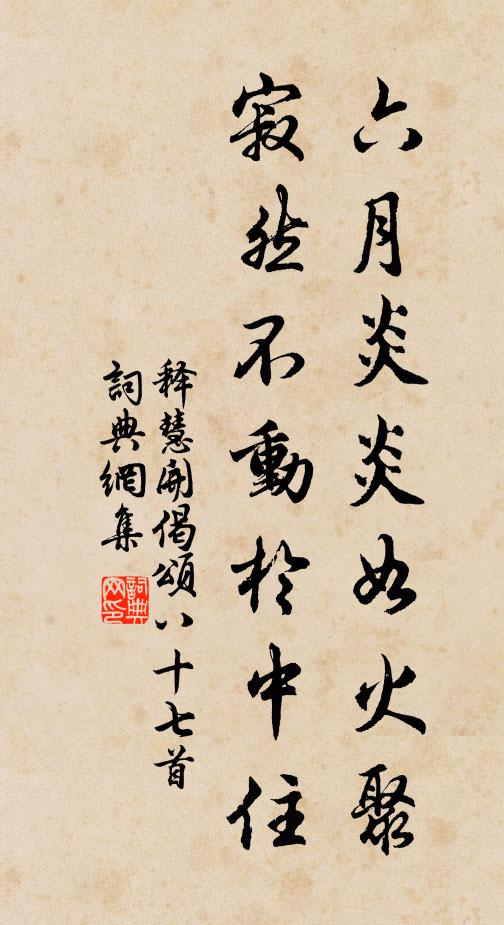 六月炎炎如火聚
寂然不動於中住
释慧開偈頌八十七首
詞典網集
詞典網印